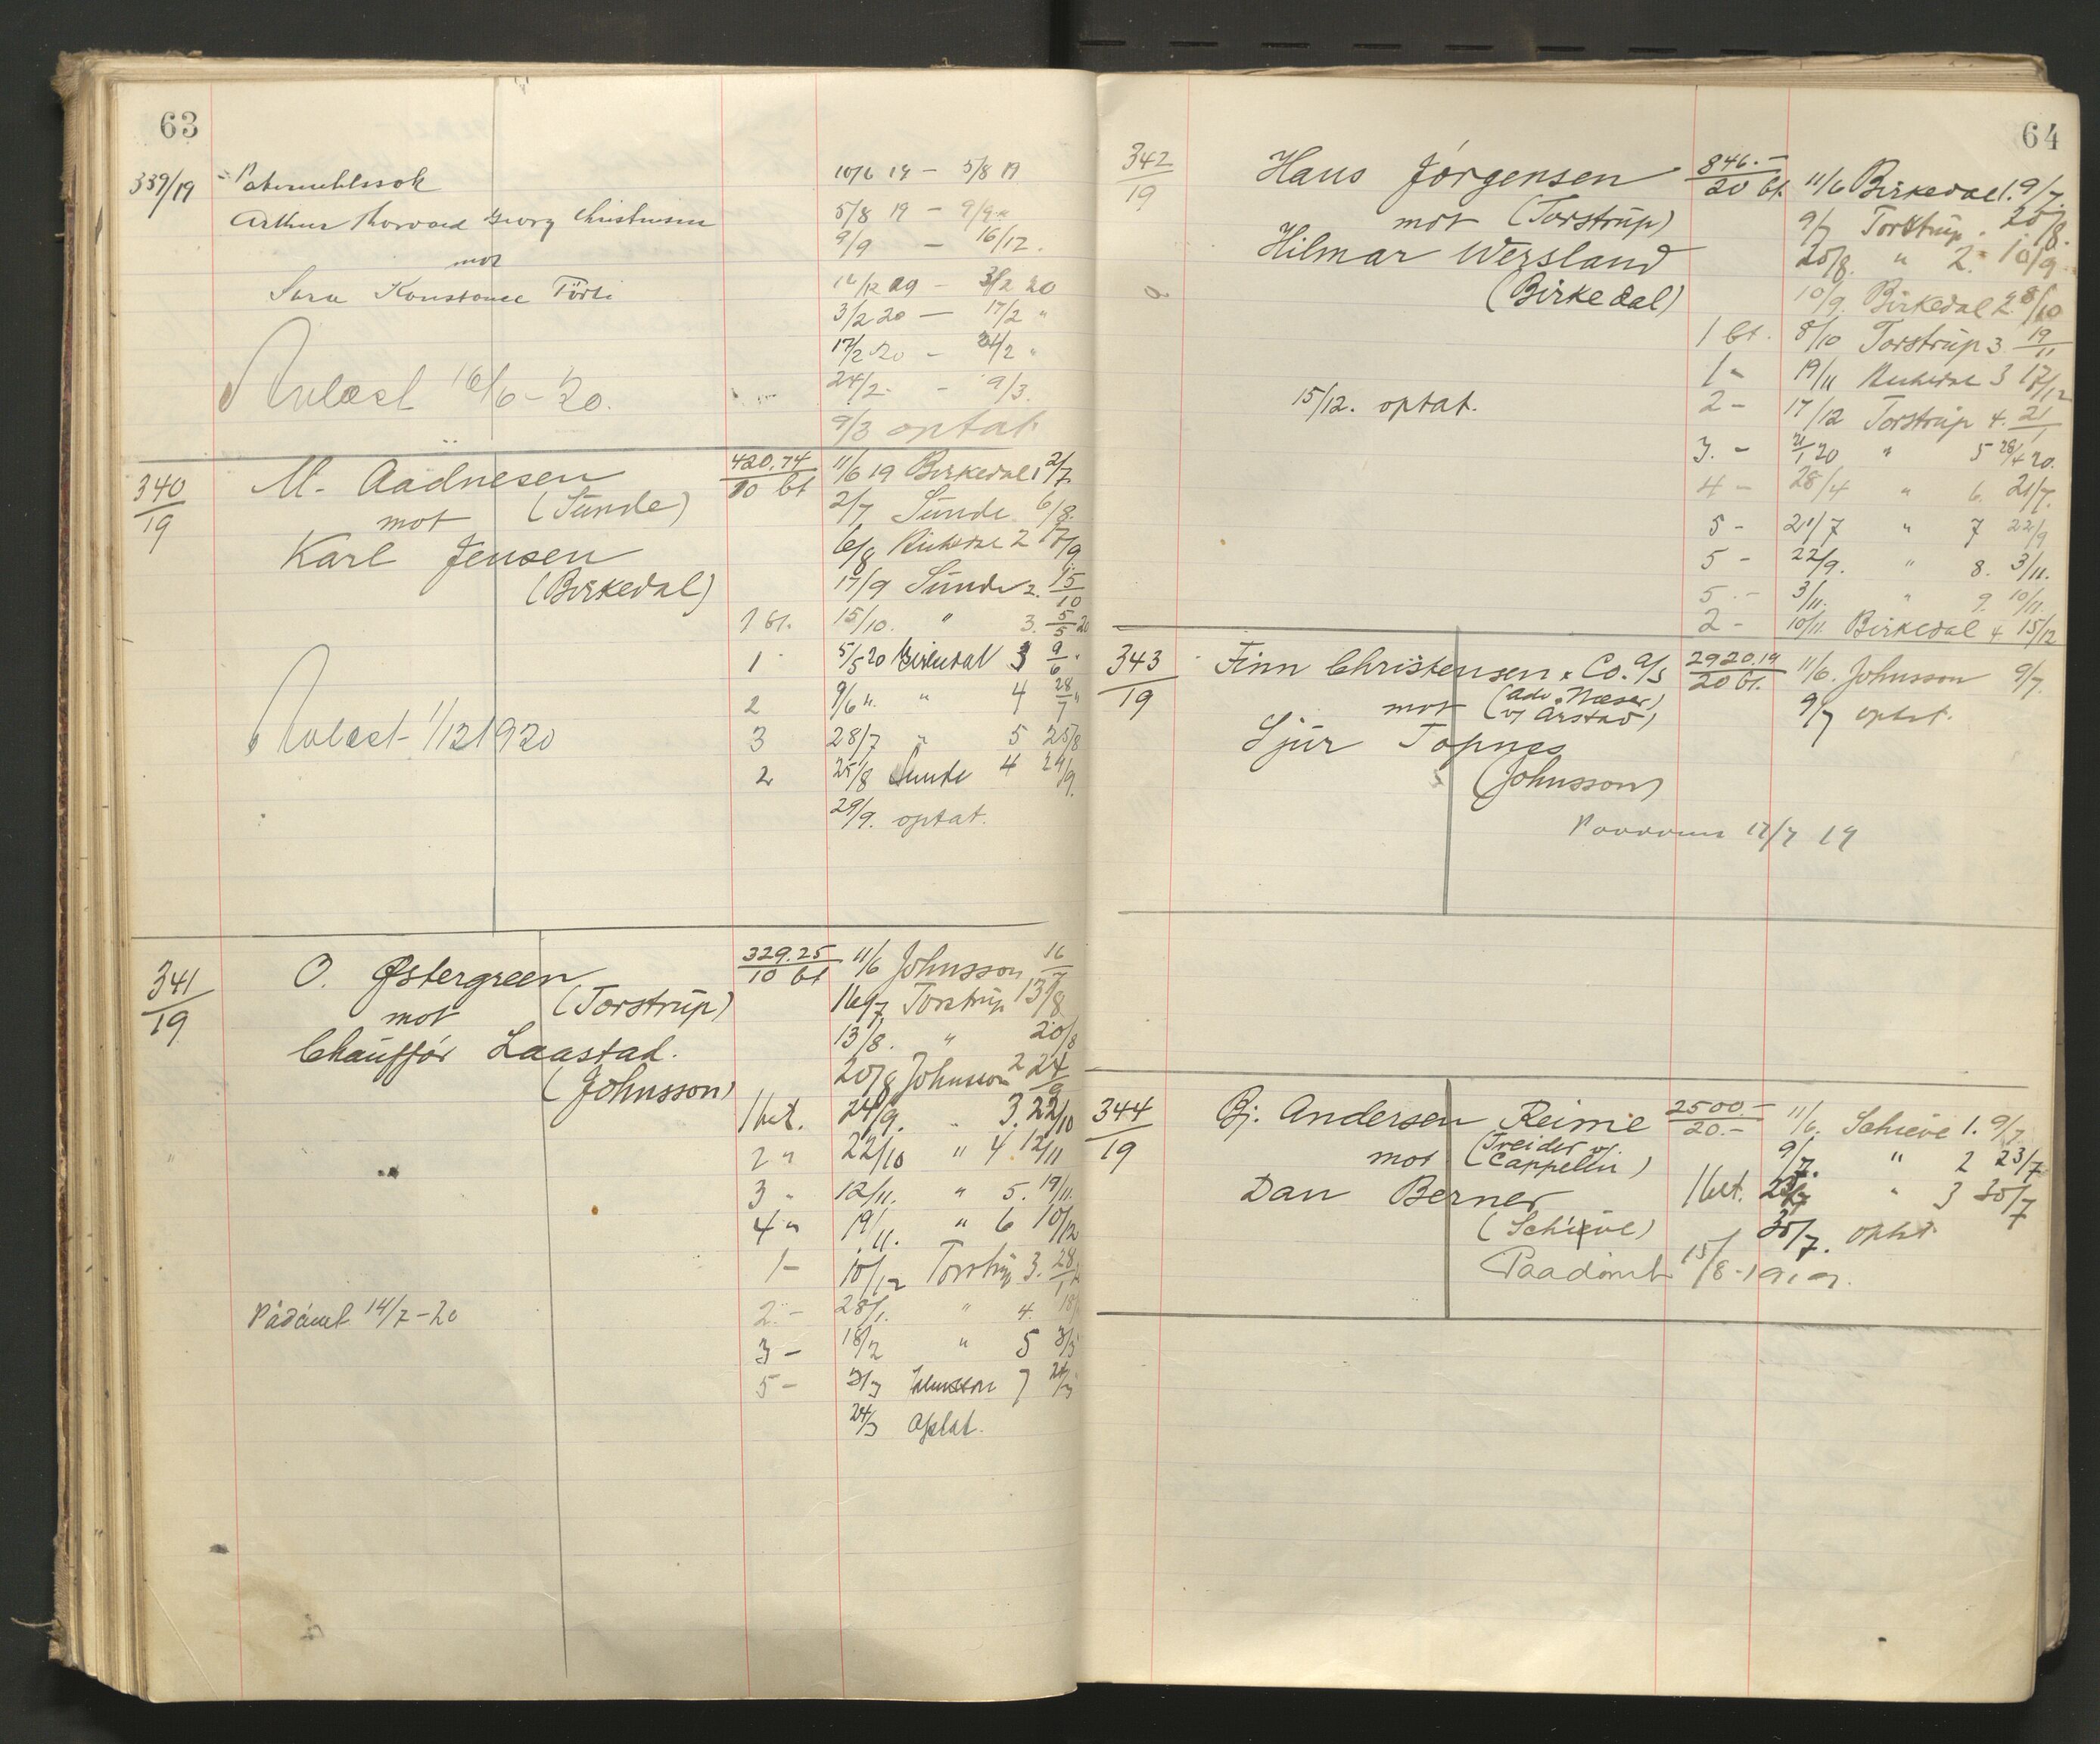 63
339/19
Arthur Thorvald Georg Christensen
mot
Sara Konstance
10/6 19 — 5/8 19
5/8 19 — 9/9
9/9 — 16/12.
16/12 19 — 3/2 20
3/2 20 — 17/2 "
17/2 20 — 24/2 "
24/2 - — 9/3.
9/3 optat.
16/6 - 20.
340/19
M. Aadnesen
mot (Sunde)
Karl Jensen
(Birkedal)
420,74
10 bt
11/6 19 Birkedal 1 2/7
2/7 Sunde 6/8.
6/8 Birkedal 2 17/9
17/9 Sunde 2. 15/10
1 bt. 15/10. " 3. 5/5 20
1 5/5 20 Birkedal 3 9/6 "
2 9/6 ". " 4 28/7 "
3 28/7 " 5 25/8
2 25/8 Sunde 4 29/9.
29/9. optat.
1/12 1920
341/19
O. Østergreen
mot (Torstrup)
Chauffør Laastad.
(Johnsson)
329.25
10 bt
11/6 Johnsson 16/7
16/7 Torstrup 13/8
13/8. " 20/8
20/8 Johnsson 2 24/9
1 bet. 24/9. " 3. 22/10
2 " 22/10 " 4 12/11
3 " 12/11. " 5. 19/11.
4 " 19/11. " 6 10/12
1 - 10/12 Torstrup 3. 28/1
2. - 28/1. " 4. 18/
3 - 18/2 " 5 3/3
5 - 3/3 Johnsson 7 24/3
24/3 optat.
Pådømt 14/7 - 20
64
342/19
Hans Jørgensen
mot (Torstrup)
Hilmar Wersland
(Birkedal)
846.-
20 bt.
11/6 Birkedal 1. 9/7.
9/7 Torstrup. 20/8.
20/8. " 2. 10/9
10/9. Birkedal 2. 8/10
1 bt. 8/10 Torstrup 3 19/11
1 " 19/11 Birkedal 3 17/12
2 - 17/12 Torstrup 4. 21/1
3. - 21/1 20 " 5 28/4 20.
4 - 28/4 " 6. 21/7.
5 - 21/7 " 7 22/9
5 - 22/9. " 8. 3/11.
5. - 3/11. " 9. 10/11.
2 - 10/11. Birkedal 4 15/12
15/12. optat.
343/19
Finn Christensen & Co. A/S
mot (adv. Næser)
(v/ Årstad)
Sjur Topnes
(Johnsson)
2920.19
20 bt.
11/6. Johnsson 9/7.
9/7 optat.
17/7 19
344/19
Bj. Andersen Reime
mot (Treider v/
Cappelen)
Dan Berner
(Schieve)
2500.-
20.-
11/6. Schieve 1. 9/7
9/7. " 2 23/7
1 bet. 23/7 " 3 30/7
30/7. optat
Paadømt 15/8 - 1919.